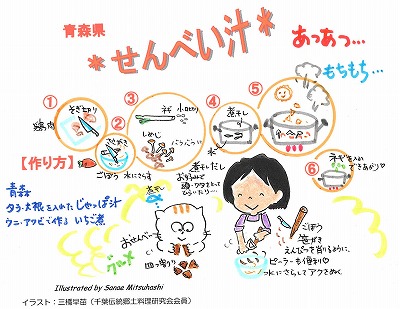 青森県
*せんべい汁*
あつあつ…
もちもち…
①
そぎ切り
鶏肉
②
ささがき
ごぼう 水にさらす
③
ネギ 小口切り
しめじ
バラバラに
④
煮干し
水
⑤
⑥
ネギを入れ
できあがり♡
【作り方】
煮干だし
お好みで
頭・ワタをとって
青森
タラ・大根を入れたじゃっぱ汁
ウニ・アワビで作るいちご煮
煮干し
おせんべー
四つ割り
グルメ
ごぼう
笹がき
えんぴつを削るように、
ピーラーも便利♡
水にさらしてアクをぬく
Illustrated by Sanae Mitsuhashi
イラスト:三橋早苗(千葉伝統郷土料理研究会会員)